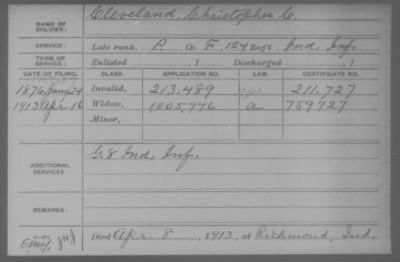 NAME OF SOLDIER: Cleveland, Christopher C.
SERVICE: Late rank, P. Co F, 124 Reg't Ind. Inf.
TERM OF SERVICE: Enlisted , 1 Discharged , 1
DATE OF FILING. CLASS. APPLICATION NO. LAW. CERTIFICATE NO.
1876, 24 Invalid, 213.489 211.727
1913 Apr 16 Widow, 1005.776 a 759727
Minor,
ADDITIONAL SERVICES: G. 8 Ind. Inf.
REMARKS:
Died Apr 8, 1913, at Richmond, Ind.